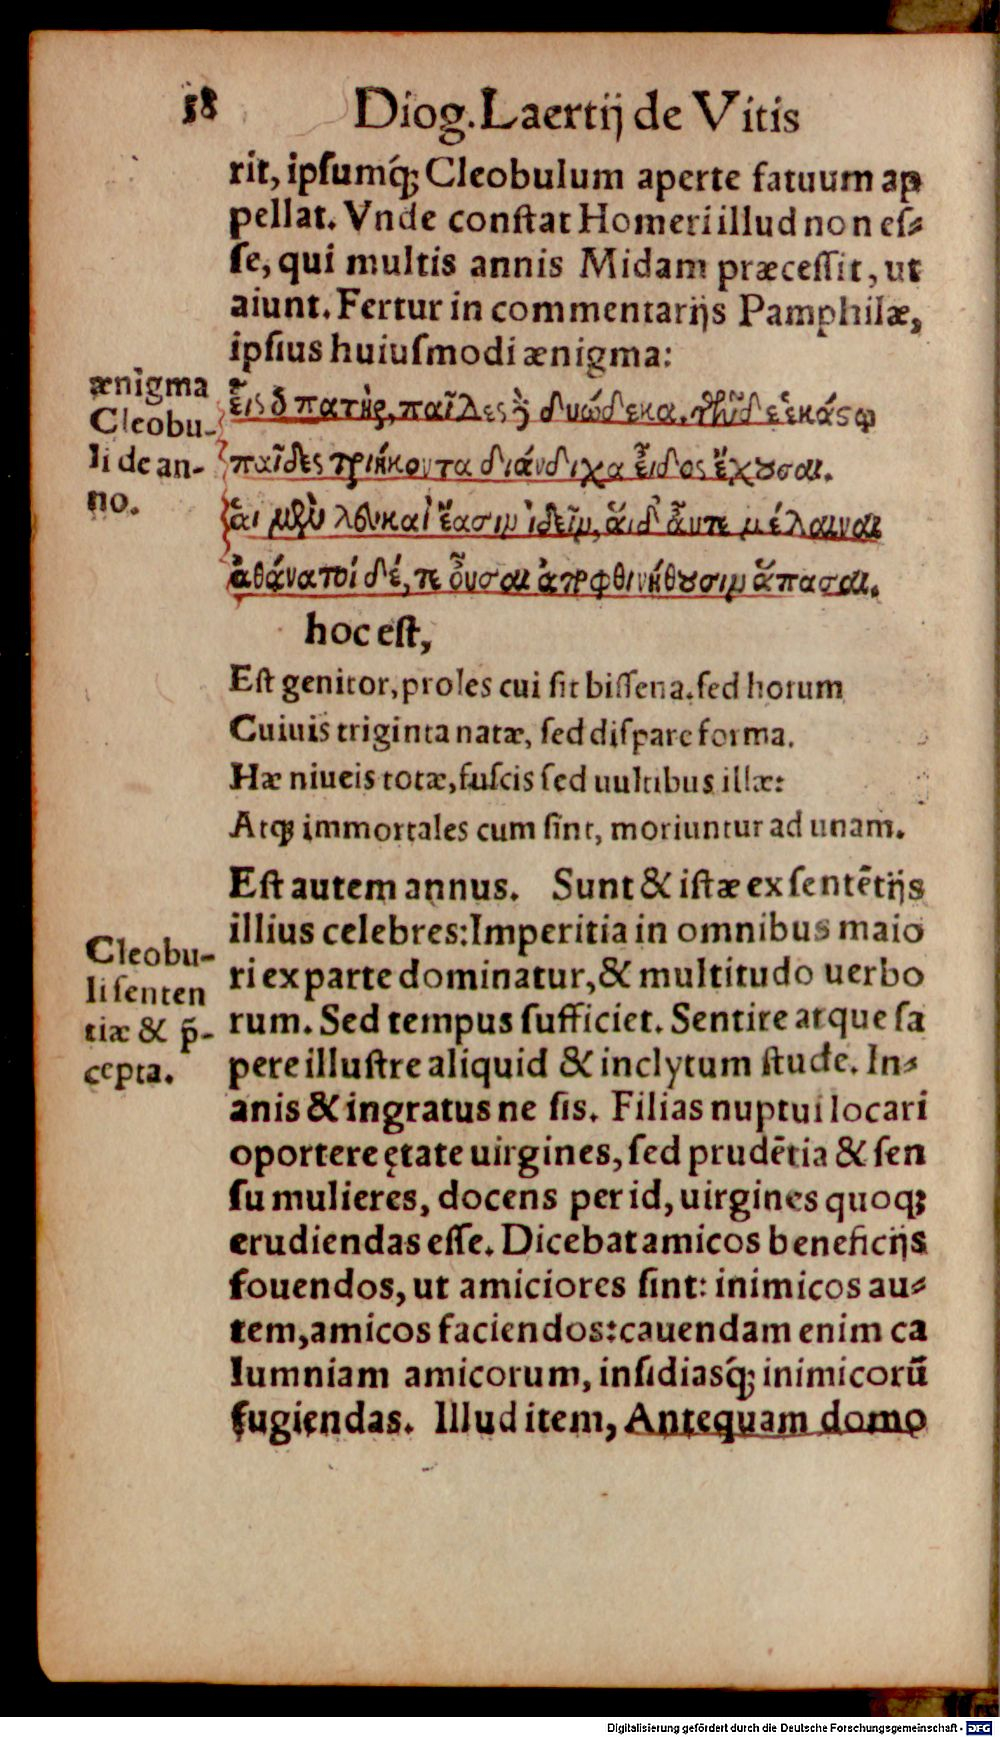 58
Diog. Laertij de Vitis
rit, ipſumq́; Cleobulum aperte fatuum ap
pellat. Vnde conſtat Homeri illud non eſ⸗
ſe, qui multis annis Midam præceſſit, ut
aiunt. Fertur in commentarijs Pamphilæ,
ipſius huiuſmodi ænigma:
ænigma
Cleobu-
li de an-
no.
εἷς ὁ πατὴρ, παῖδες δυώδεκα. εἑκάςῳ
παῖδες τριήκοντα διάνδιχα εἶδος ἔχουσαι.
αἱ μὲν λευκαὶ ἔασιν ἰδεῖν, αἱ δ' αὖτε μέλαιναι
ἀθάνατοι δέ, τε οὖσαι ἀποφθινήθουσιν ἅπασαι.
hoc eſt,
Eſt genitor, proles cui ſit biſſena. ſed horum
Cuiuis triginta natæ, ſed diſpare forma.
Hæ niueis totæ, fuſcis ſed uultibus illæ:
Atq; immortales cum ſint, moriuntur ad unam.
Eſt autem annus. Sunt & iſtæ ex ſentētijs
illius celebres: Imperitia in omnibus maio
ri ex parte dominatur, & multitudo uerbo
rum. Sed tempus ſufficiet. Sentire atque ſa
pere illuſtre aliquid & inclytum ſtude. In⸗
anis & ingratus ne ſis. Filias nuptui locari
oportere ętate uirgines, ſed prudētia & ſen
ſu mulieres, docens per id, uirgines quoq;
erudiendas eſſe. Dicebat amicos beneficijs
fouendos, ut amiciores ſint: inimicos au⸗
tem, amicos faciendos: cauendam enim ca
lumniam amicorum, inſidiasq́; inimicorū
fugiendas. Illud item, Antequam domo
Cleobu-
li ſenten
tiæ & p̄-
cepta.
Digitalisierung gefördert durch die Deutsche Forschungsgemeinschaft - DFG